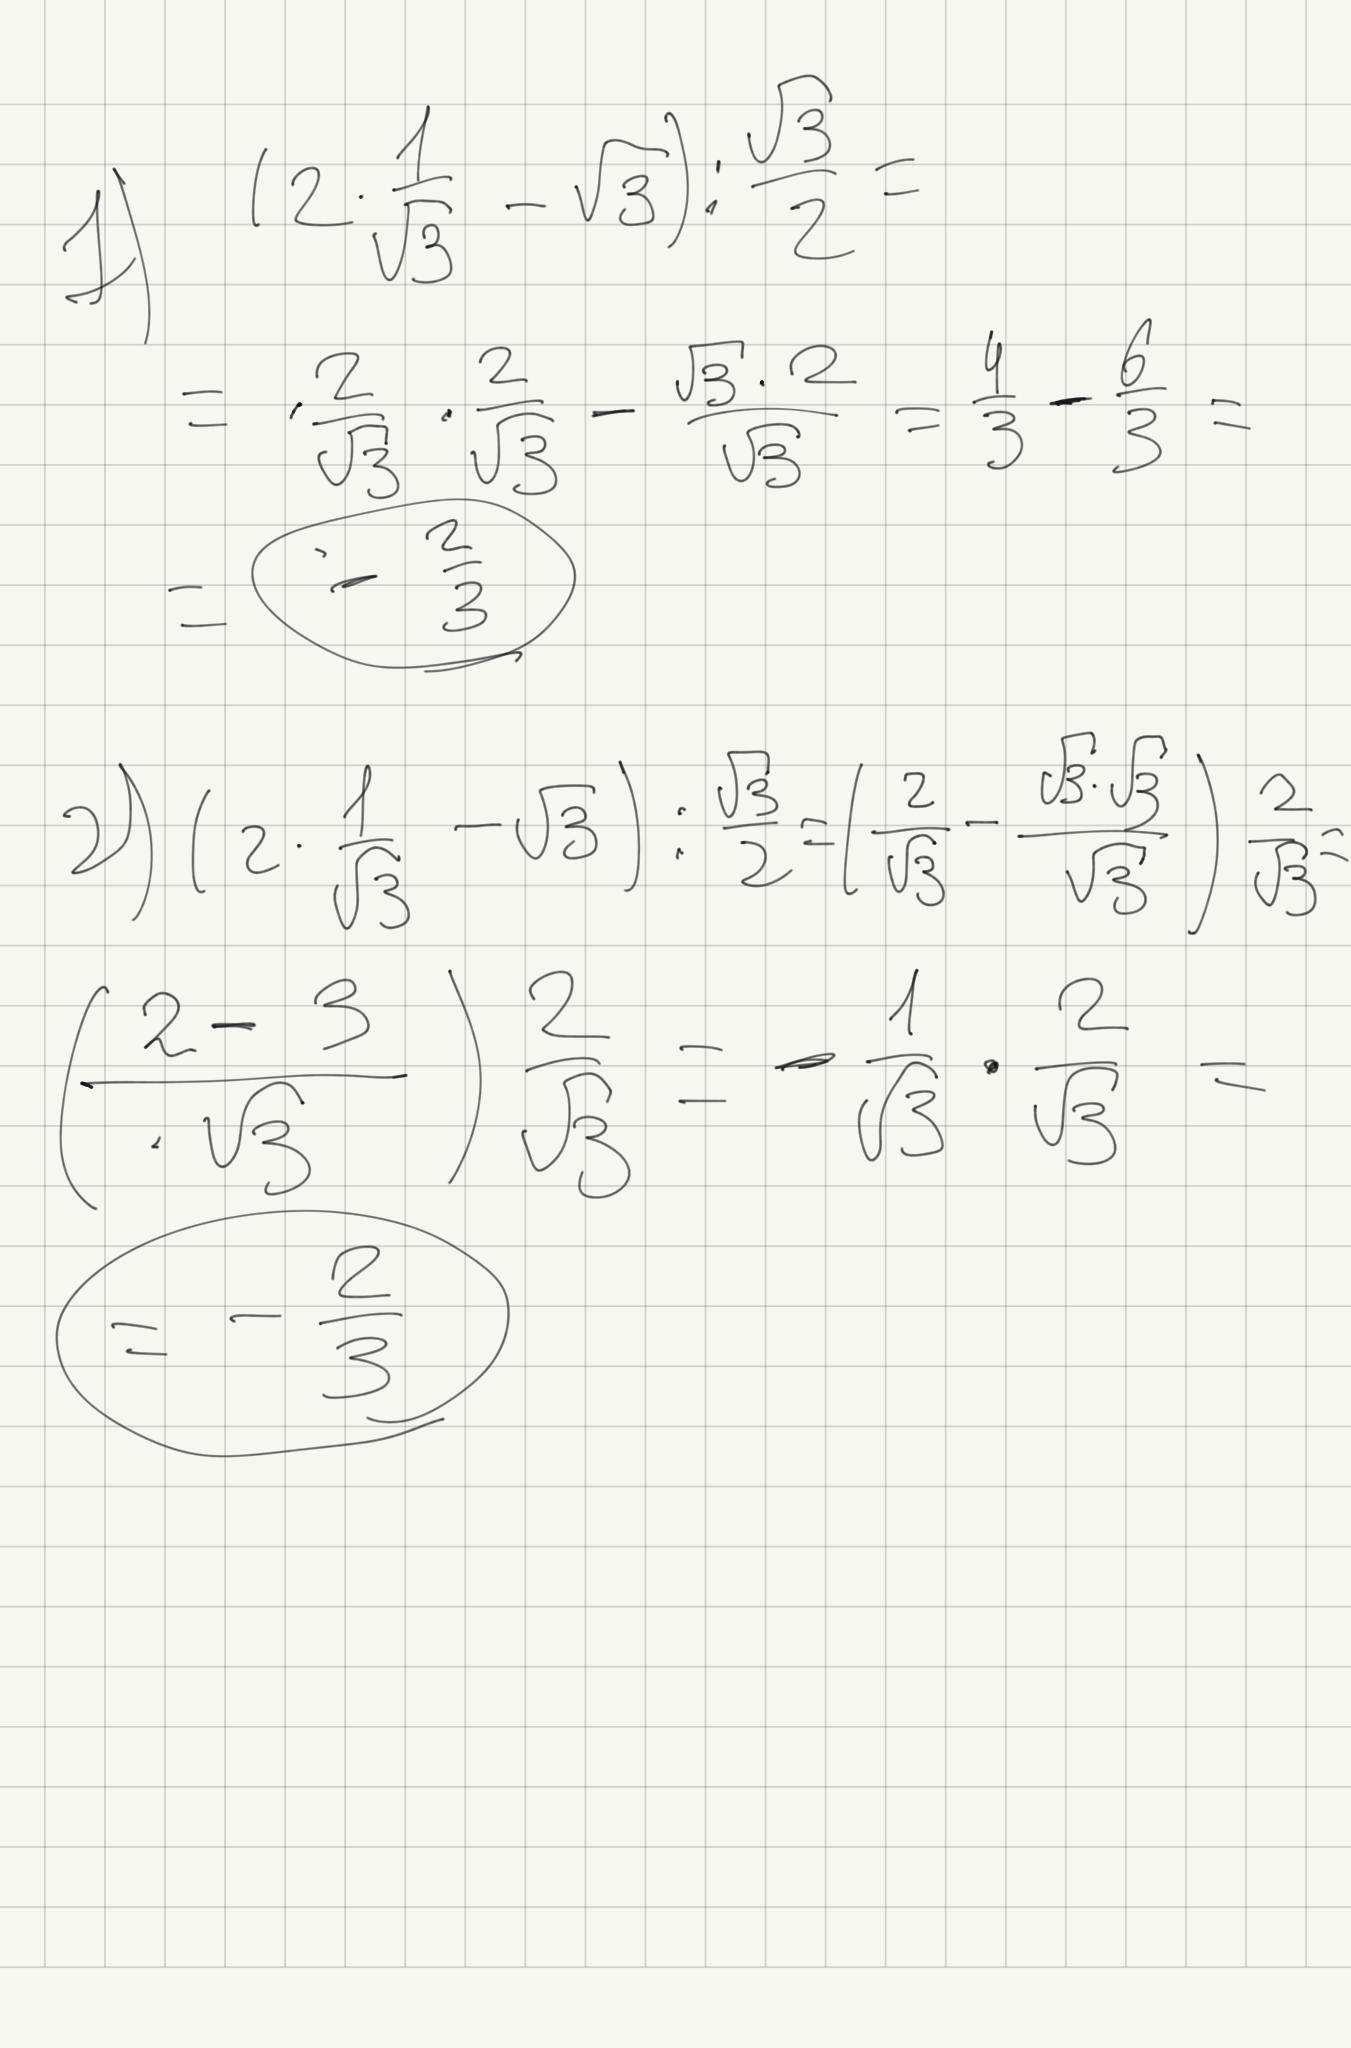 1) (2 · 1/√3 − √3) : √3/2 =
= · 2/√3 · 2/√3 − √3 · 2/√3 = 4/3 − 6/3 =
= − 2/3
2) (2 · 1/√3 − √3) : √3/2 = (2/√3 − √3 · √3/√3) 2/√3 =
(2 − 3/√3) 2/√3 = − 1/√3 · 2/√3 =
= − 2/3